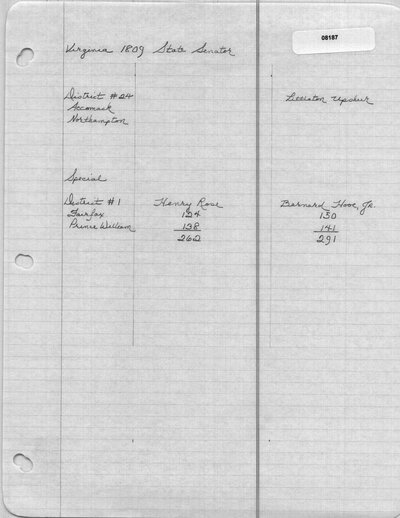 08187
Virginia 1809 State Senator
District #24 Littleton Upshur
Accomack
Northampton
Special
District #1 Henry Rose Barnard Hooe, Jr.
Fairfax 124 150
Prince William 138 141
262 291